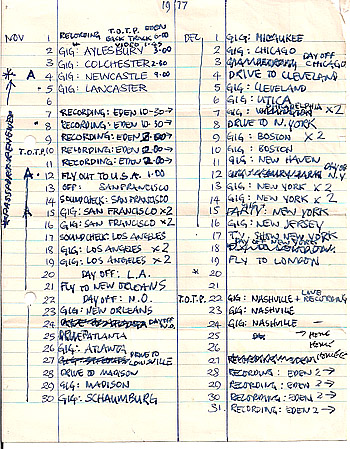 1977
NOV
1 RECORDING T.O.T.P. EDEN
BACK TRACK
VIDEO
2 GIG: AYLESBURY 5-00
3 GIG: COLCHESTER 2-30
* A 4 GIG: NEWCASTLE 9-00
5 GIG: LANCASTER
6
7 RECORDING: EDEN 10-30→
8 RECORDING: EDEN 10-30→
9 RECORDING: EDEN 2-00→
T.O.T.P. 10 RECORDING: EDEN 2-00→
11 RECORDING: EDEN 2-00→
A 12 FLY OUT TO U.S.A. 1.00
13 OFF: SAN FRANCISCO
14 SOUNDCHECK: SAN FRANCISCO
A 15 GIG: SAN FRANCISCO X2
16 GIG: SAN FRANCISCO X2
17 SOUNDCHECK LOS ANGELES
18 GIG: LOS ANGELES X2
19 GIG: LOS ANGELES X2
20 DAY OFF: L.A.
21 FLY TO NEW ORLEANS
22 DAY OFF: N.O.
23 GIG: NEW ORLEANS
24 DAY OFF N.O.
25 ATLANTA
26 GIG: ATLANTA
27 DRIVE TO LOUISVILLE
28 DRIVE TO MADISON
29 GIG: MADISON
30 GIG: SCHAUMBURG
DEC
1 GIG: MILWAUKEE
2 GIG: CHICAGO
3 DAY OFF CHICAGO
4 DRIVE TO CLEVELAND
5 GIG: CLEVELAND
6 GIG: UTICA
7 GIG: PHILADELPHIA X2
8 DRIVE TO N. YORK
9 GIG: BOSTON X2
10 GIG: BOSTON
11 GIG: NEW HAVEN
12 DAY OFF N.Y
13 GIG: NEW YORK X2
14 GIG: NEW YORK X2
15 PARTY: NEW YORK
16 GIG: NEW JERSEY
17 T.V. SHOW NEW YORK
18 DAY OFF NEW YORK
19 FLY TO LONDON
* 20
21
T.O.T.P. 22 GIG: NASHVILLE + LIVE RECORDING
23 GIG: NASHVILLE
24 GIG: NASHVILLE
25 → HOME
26 HOME
27 HOME
28 RECORDING: EDEN 2→
29 RECORDING: EDEN 2→
30 RECORDING: EDEN 2→
31. RECORDING: EDEN 2→